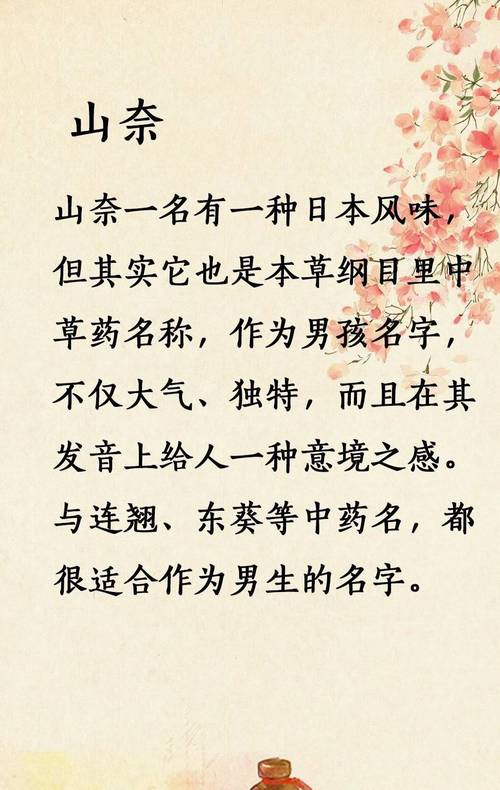 山奈
山奈一名有一种日本风味，
但其实它也是本草纲目里中
草药名称，作为男孩名字，
不仅大气、独特，而且在其
发音上给人一种意境之感。
与连翘、东葵等中药名，都
很适合作为男生的名字。